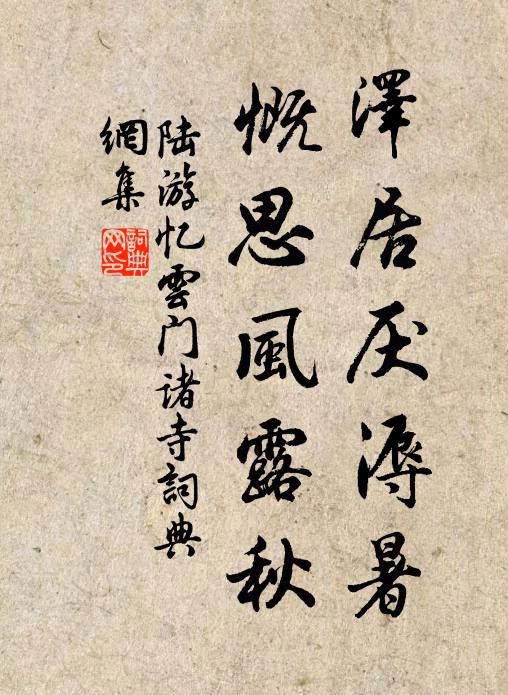 澤居厌溽暑
慨思風露秋
陆游忆雲门诸寺詞典
網集
詞典
网印